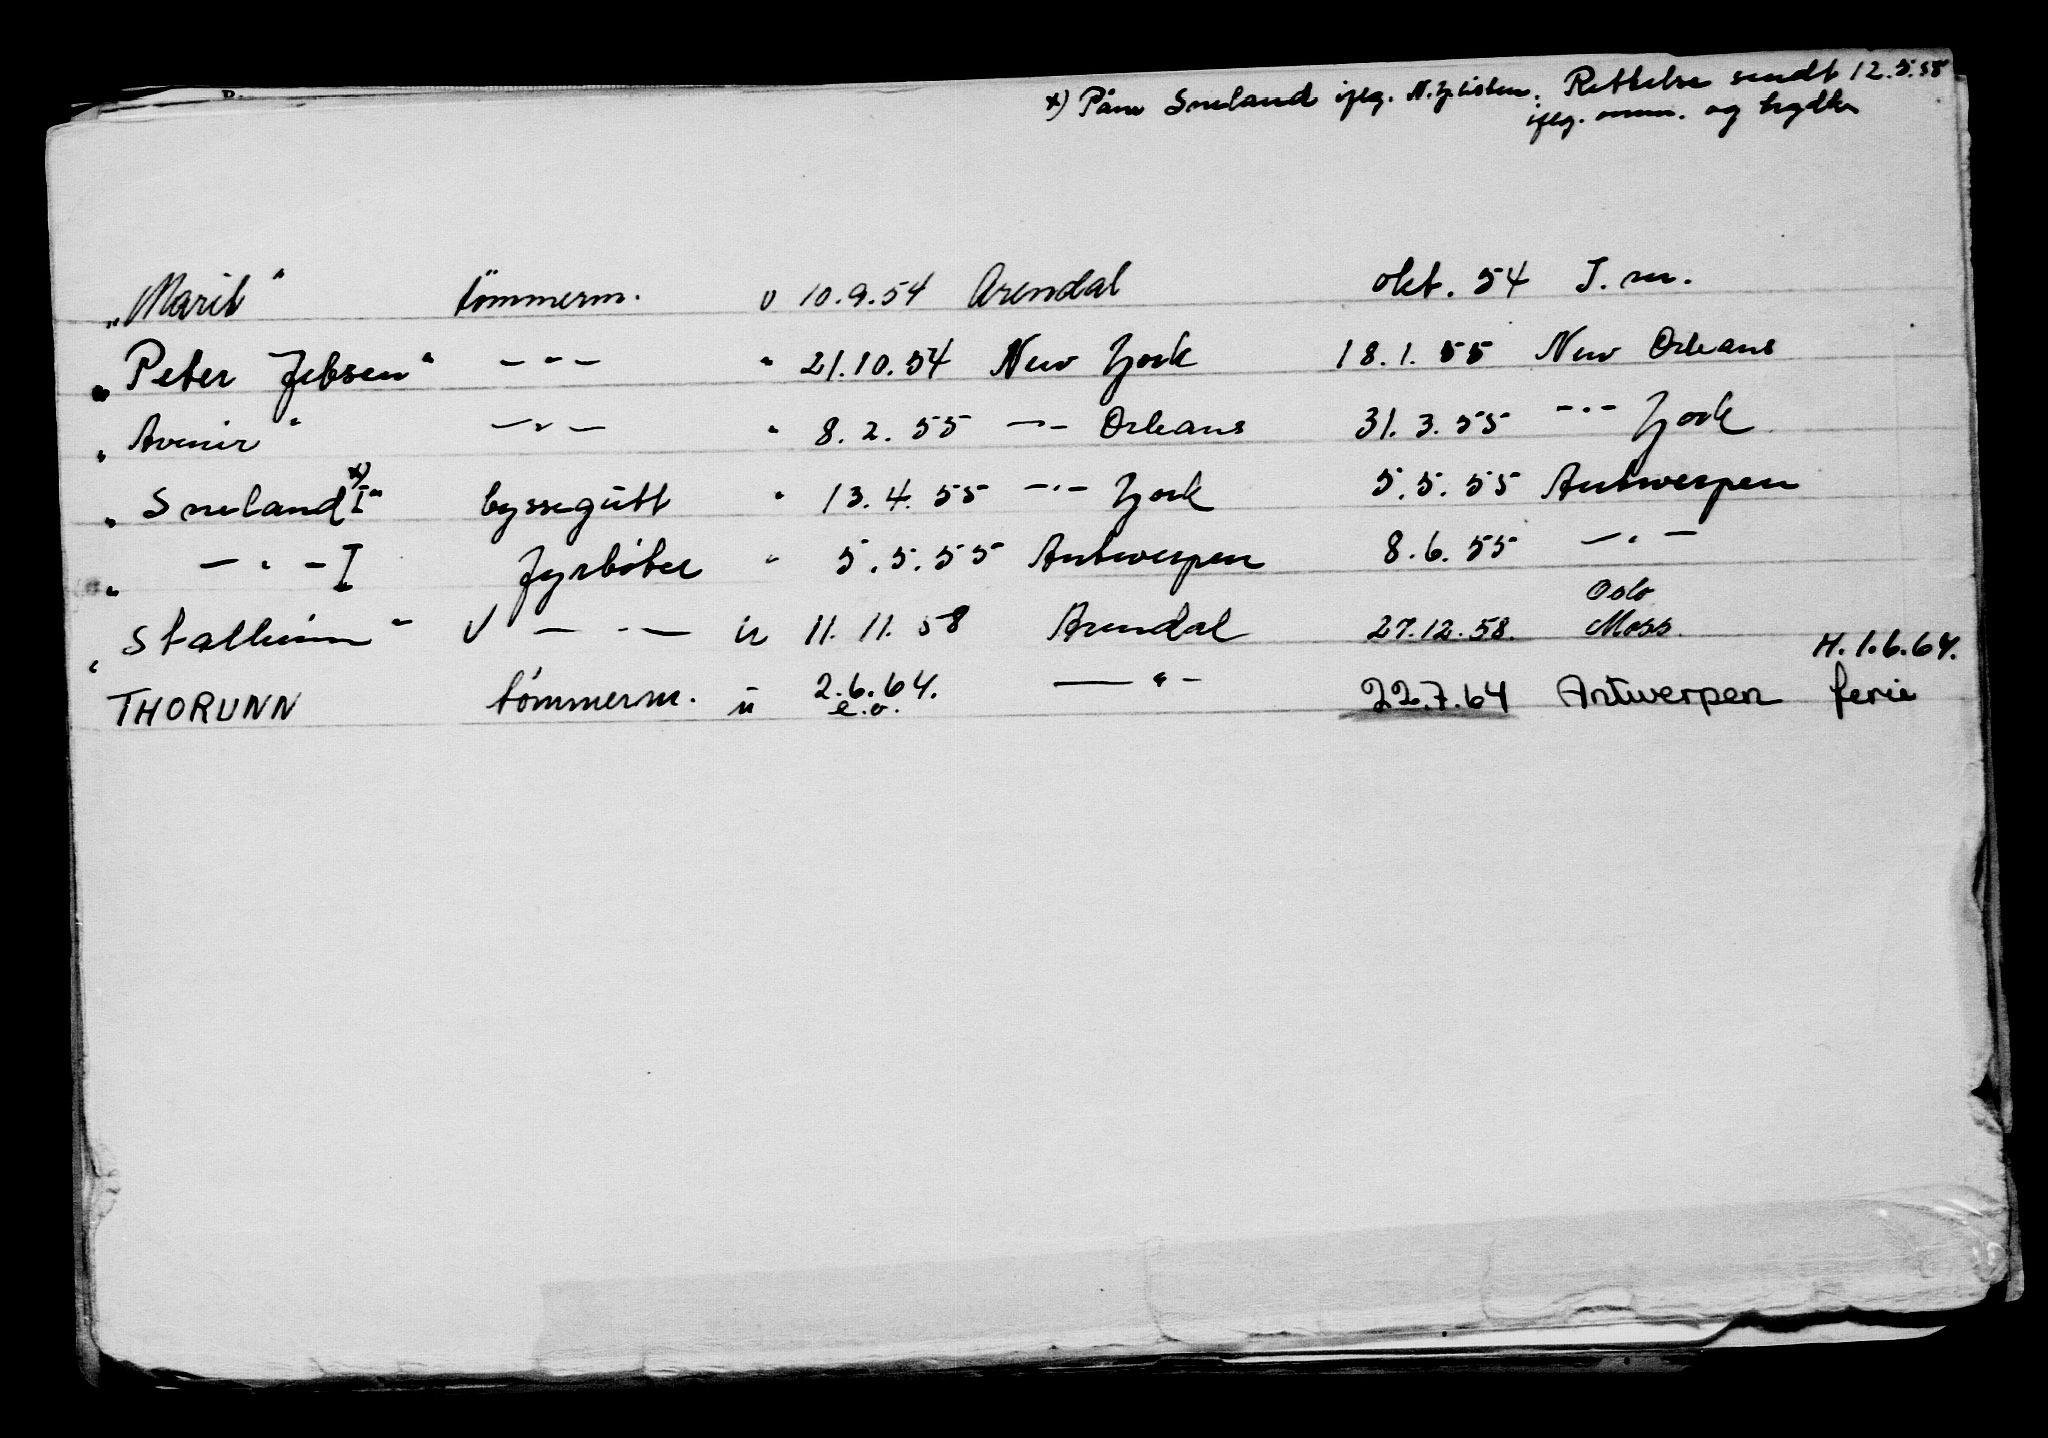 x) Påm Sneland iflg. N.Y.listen. Rettelse sendt 12.5.58
iflg. omm. og trygdk
"Marit" tömmerm. u 10.9.54 Arendal okt. 54 I. m.
"Peter Jebsen" — " — " 21.10.54 New York 18.1.55 New Orleans
"Avenir" — " — " 8.2.55 — " — Orleans 31.3.55 — " — York
"Sneland I" x) byssegutt " 13.4.55 — " — York 5.5.55 Antwerpen
" — " — I fyrböter " 5.5.55 Antwerpen 8.6.55 — " —
Oslo
"Stalheim" V — " — u 11.11.58 Arendal 27.12.58. Moss
H. 1.6.64.
THORUNN tömmerm. u 2.6.64. — " — 22.7.64 Antwerpen ferie
e.o.